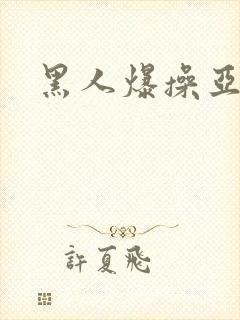 黑人爆操亞
許夏飛